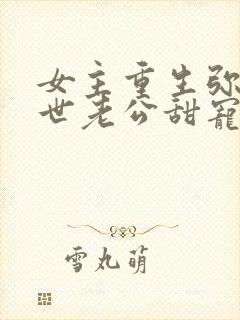 女主重生弥
世老公甜宠
雪丸萌